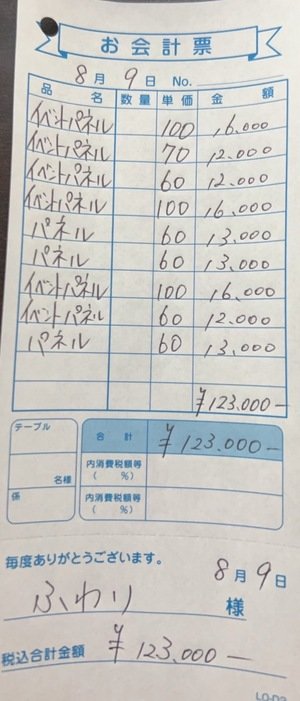 お会計票
8月9日 No.
品名 数量 単価 金額
イベントパネル 100 16.000
イベントパネル 70 12.000
イベントパネル 60 12.000
イベントパネル 100 16.000
パネル 60 13.000
パネル 60 13.000
イベントパネル 100 16.000
イベントパネル 60 12.000
パネル 60 13.000
¥123.000-
テーブル
名様
係
合計 ¥123.000-
内消費税額等
( %)
内消費税額等
( %)
毎度ありがとうございます。
8月9日
ふわり 様
税込合計金額 ¥123.000-